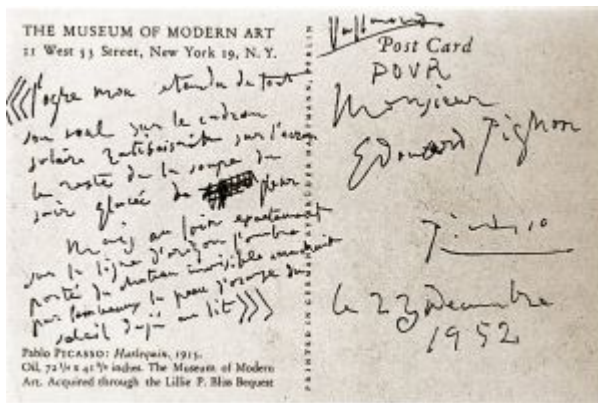 THE MUSEUM OF MODERN ART
11 West 53 Street, New York 19, N. Y.
l'ogre mou étendu de tout
son sur le cadran
solaire sur l'écran
le reste de la soupe du
soir glacée de peur
Mais au loin
sur la ligne d'orizon l'ombre
porté du chateau invisible
par la peau d'orange du
soleil déjà au lit
Pablo PICASSO: Harlequin, 1915.
Oil, 72 1/4 x 41 3/8 inches. The Museum of Modern
Art. Acquired through the Lillie P. Bliss Bequest
PRINTED IN GERMANY BERLIN
Vallauris
Post Card
POUR
Monsieur
Edouard Pignon
Picasso
le 23 Decembre
1952